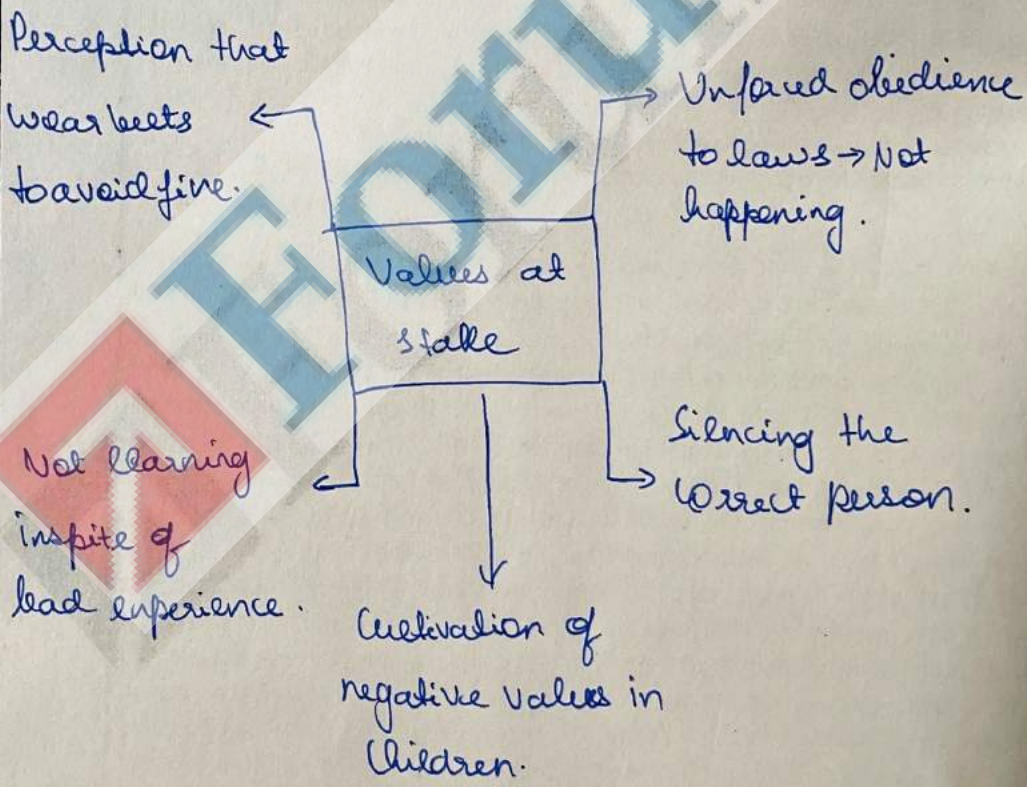 Perception that
wear belts
to avoid fine.
Unforced obedience
to laws → Not
happening.
Values at
stake
Not learning
inspite of
bad experience.
Silencing the
correct person.
Cultivation of
negative values in
Children.
Foru